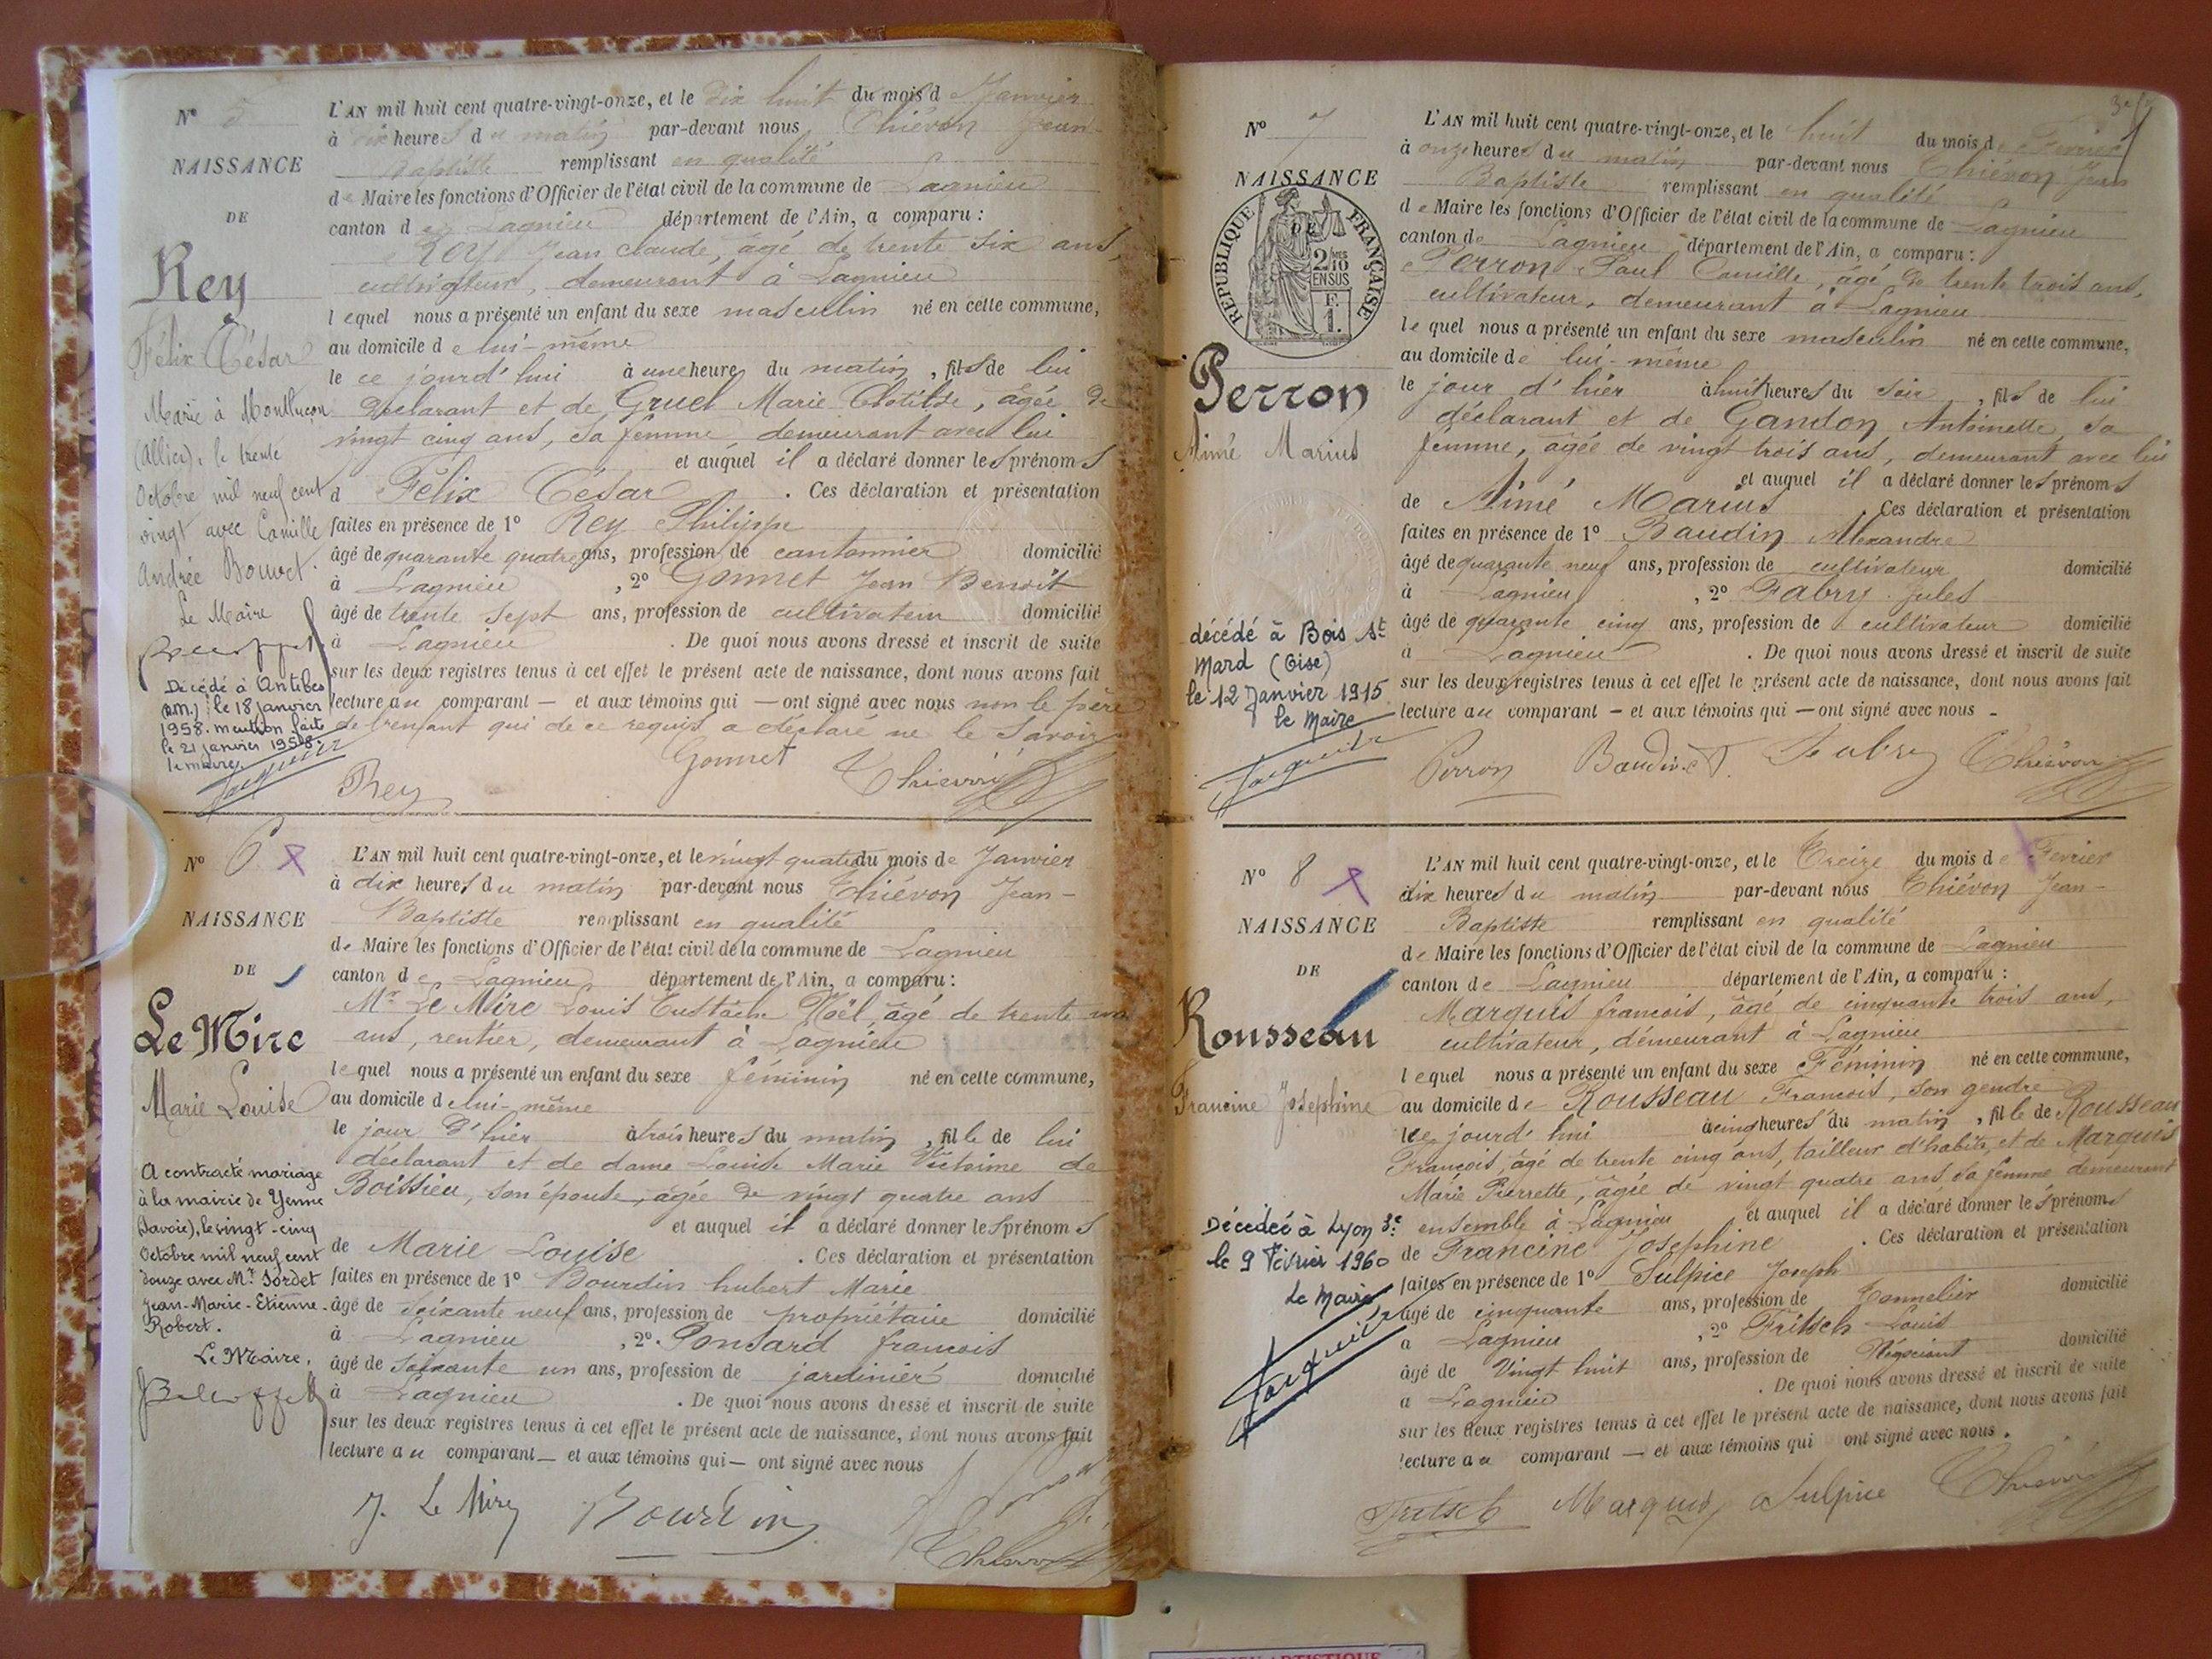 N° 5
NAISSANCE
DE
Rey
Félix César
Marié à Montluçon
(Allier), le trente
Octobre mil neuf cent
vingt avec Camille
Andrée Bouvet.
Le Maire
Décédé à Antibes
(A.M.) le 18 janvier
1958. mention faite
le 21 janvier 1958.
le maire,
L'AN mil huit cent quatre-vingt-onze, et le dix huit du mois de Janvier
à dix heures du matin par-devant nous Thiévon Jean-
Baptiste remplissant en qualité
de Maire les fonctions d'Officier de l'état civil de la commune de Lagnieu
canton de Lagnieu département de l'Ain, a comparu :
Rey Jean Claude, âgé de trente six ans,
cultivateur, demeurant à Lagnieu
lequel nous a présenté un enfant du sexe masculin né en cette commune,
au domicile de lui-même
le ce jourd'hui à une heure du matin, fils de lui
déclarant et de Gruel Marie Clotilde, âgée de
vingt cinq ans, sa femme, demeurant avec lui
et auquel il a déclaré donner les prénoms
d Félix César. Ces déclaration et présentation
faites en présence de 1° Rey Philippe
âgé de quarante quatre ans, profession de cantonnier domicilié
à Lagnieu, 2° Gonnet Jean Benoît
âgé de trente sept ans, profession de cultivateur domicilié
à Lagnieu. De quoi nous avons dressé et inscrit de suite
sur les deux registres tenus à cet effet le présent acte de naissance, dont nous avons fait
lecture au comparant — et aux témoins qui — ont signé avec nous non le père
de l'enfant qui de ce requis a déclaré ne le savoir
Gonnet Thiévon
Rey
N° 6
NAISSANCE
DE
Le Mire
Marie Louise
A contracté mariage
à la mairie de Yenne
(Savoie), le vingt-cinq
Octobre mil neuf cent
douze avec Mr Sordet
Jean-Marie-Etienne-
Robert.
Le Maire,
L'AN mil huit cent quatre-vingt-onze, et le vingt quatre du mois de Janvier
à dix heures du matin par-devant nous Thiévon Jean-
Baptiste remplissant en qualité
de Maire les fonctions d'Officier de l'état civil de la commune de Lagnieu
canton de Lagnieu département de l'Ain, a comparu :
Mr Le Mire Louis Eustache Noël, âgé de trente un
ans, rentier, demeurant à Lagnieu
lequel nous a présenté un enfant du sexe féminin né en cette commune,
au domicile de lui-même
le jour d'hier à trois heures du matin, fille de lui
déclarant et de dame Louise Marie Victorine de
Boissieu, son épouse, âgée de vingt quatre ans
et auquel il a déclaré donner les prénoms
de Marie Louise. Ces déclaration et présentation
faites en présence de 1° Bourdin hubert Marie
âgé de soixante neuf ans, profession de propriétaire domicilié
à Lagnieu, 2° Ponsard francois
âgé de soixante un ans, profession de jardinier domicilié
à Lagnieu. De quoi nous avons dressé et inscrit de suite
sur les deux registres tenus à cet effet le présent acte de naissance, dont nous avons fait
lecture au comparant — et aux témoins qui — ont signé avec nous
Le Mire Bourdin
Thiévon
N° 7
NAISSANCE
DE
REPUBLIQUE FRANÇAISE
2/10 MES
EN SUS
F.
1.
Perron
Aimé Marius
décédé à Bois St
Mard (Oise)
le 12 Janvier 1915
le Maire
L'AN mil huit cent quatre-vingt-onze, et le huit du mois de Fevrier
à onze heures du matin par-devant nous Thiévon Jean
Baptiste remplissant en qualité
de Maire les fonctions d'Officier de l'état civil de la commune de Lagnieu
canton de Lagnieu département de l'Ain, a comparu :
Perron Paul Camille, âgé de trente trois ans,
cultivateur, demeurant à Lagnieu
lequel nous a présenté un enfant du sexe masculin né en cette commune,
au domicile de lui-même
le jour d'hier à huit heures du soir, fils de lui
déclarant et de Gandon Antoinette, sa
femme, âgée de vingt trois ans, demeurant avec lui
et auquel il a déclaré donner les prénoms
de Aimé Marius. Ces déclaration et présentation
faites en présence de 1° Baudin Alexandre
âgé de quarante neuf ans, profession de cultivateur domicilié
à Lagnieu, 2° Fabry Jules
âgé de quarante cinq ans, profession de cultivateur domicilié
à Lagnieu. De quoi nous avons dressé et inscrit de suite
sur les deux registres tenus à cet effet le présent acte de naissance, dont nous avons fait
lecture au comparant — et aux témoins qui — ont signé avec nous -
Perron Baudin Fabry Thiévon
N° 8
NAISSANCE
DE
Rousseau
Francine Josephine
Décédée à Lyon 3e
le 9 Février 1960
Le Maire,
L'AN mil huit cent quatre-vingt-onze, et le Treize du mois de Fevrier
dix heures du matin par-devant nous Thiévon Jean-
Baptiste remplissant en qualité
de Maire les fonctions d'Officier de l'état civil de la commune de Lagnieu
canton de Lagnieu département de l'Ain, a comparu :
Marquis francois, âgé de cinquante trois ans,
cultivateur, demeurant à Lagnieu
lequel nous a présenté un enfant du sexe Féminin né en cette commune,
au domicile de Rousseau Francois, son gendre
le ce jourd'hui à cinq heures du matin, fille de Rousseau
François, âgé de trente cinq ans, tailleur d'habits, et de Marquis
Marie Pierrette, âgée de vingt quatre ans sa femme demeurant
ensemble à Lagnieu et auquel il a déclaré donner les prénoms
de Francine Josephine. Ces déclaration et présentation
faites en présence de 1° Sulpice Joseph
âgé de cinquante ans, profession de Tonnelier domicilié
à Lagnieu, 2° Fritsch Louis
âgé de Vingt huit ans, profession de Négociant domicilié
à Lagnieu. De quoi nous avons dressé et inscrit de suite
sur les deux registres tenus à cet effet le présent acte de naissance, dont nous avons fait
lecture au comparant — et aux témoins qui ont signé avec nous.
Fritsch Marquis Sulpice Thiévon